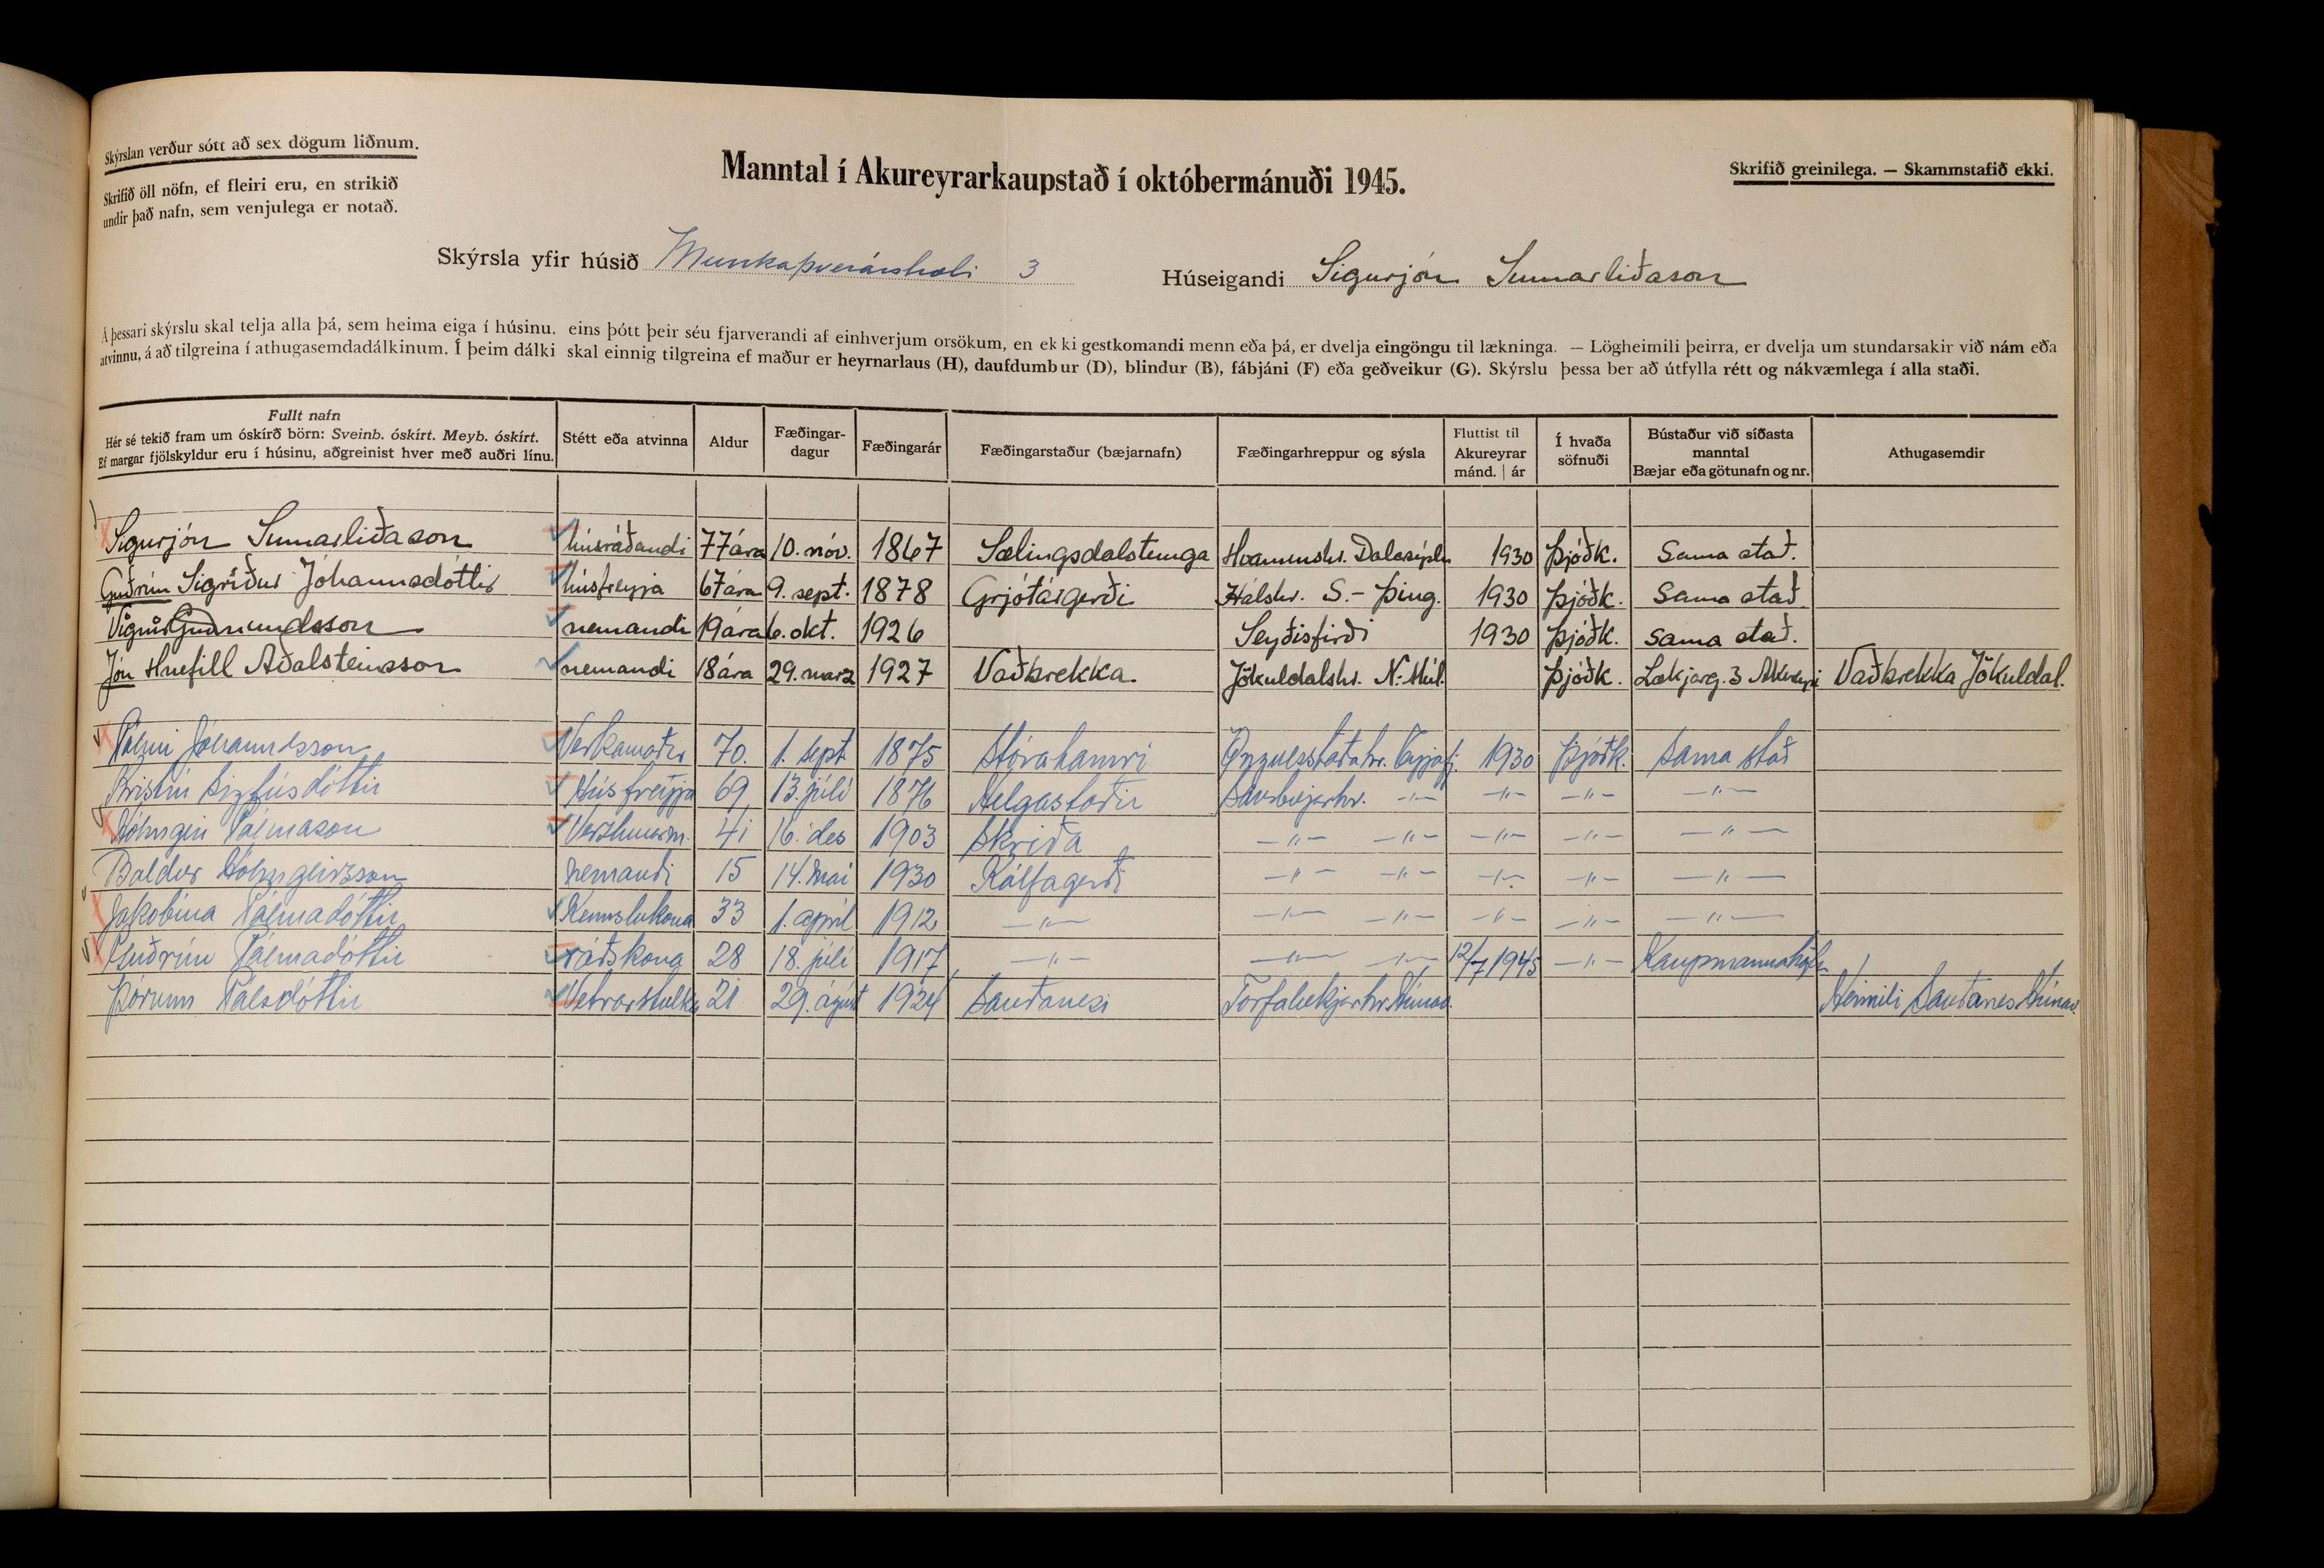 Skýrslan verður sótt að sex dögum liðnum.
Skrifið öll nöfn, ef fleiri eru, en strikið
undir það nafn, sem venjulega er notað.
Manntal í Akureyrarkaupstað í októbermánuði 1945.
Skrifið greinilega. — Skammstafið ekki.
Skýrsla yfir húsið Munkaþverárstræti 3
Húseigandi Sigurjón Sumarliðason
Á þessari skýrslu skal telja alla þá, sem heima eiga í húsinu, eins þótt þeir séu fjarverandi af einhverjum orsökum, en ekki gestkomandi menn eða þá, er dvelja eingöngu til lækninga. — Lögheimili þeirra, er dvelja um stundarsakir við nám eða
atvinnu, á að tilgreina í athugasemdadálkinum. Í þeim dálki skal einnig tilgreina ef maður er heyrnarlaus (H), daufdumbur (D), blindur (B), fábjáni (F) eða geðveikur (G). Skýrslu þessa ber að útfylla rétt og nákvæmlega í alla staði.
Fullt nafn
Hér sé tekið fram um óskírð börn: Sveinb. óskírt. Meyb. óskírt.
Ef margar fjölskyldur eru í húsinu, aðgreinist hver með auðri línu.
Stétt eða atvinna
Aldur
Fæðingar-
dagur
Fæðingarár
Fæðingarstaður (bæjarnafn)
Fæðingarhreppur og sýsla
Fluttist til
Akureyrar
mánd. | ár
Í hvaða
söfnuði
Bústaður við síðasta
manntal
Bæjar eða götunafn og nr.
Athugasemdir
Sigurjón Sumarliðason húsráðandi 77 ára 10. nóv. 1867 Sælingsdalstunga Hvammshr. Dalasýslu 1930 Þjóðk. Sama stað.
Guðrún Sigríður Jóhannsdóttir húsfreyja 67 ára 9. sept. 1878 Grjótárgerði Hálshr. S.-Þing. 1930 Þjóðk. Sama stað.
Vignir Guðmundsson nemandi 19 ára 6. okt. 1926 Seyðisfirði 1930 Þjóðk. Sama stað.
Jón Hnefill Aðalsteinsson nemandi 18 ára 29. marz 1927 Vaðbrekka. Jökuldalshr. N.-Múl. Þjóðk. Lækjarg. 3 Akureyri Vaðbrekka Jökuldal.
Pálmi Jóhannsson Verkamaður 70. 1. sept 1875 Stórahamri Öngulsstaðahr. Eyjafj. 1930 Þjóðk. Sama stað
Kristín Sigfúsdóttir Húsfreyja 69 13. júlí 1876 Helgastöðir Saurbæjarhr. —〃— —〃— —〃— —〃—
Hólmgeir Pálmason Verzlunarm. 41 16. des 1903 Skriða —〃— —〃— —〃— —〃— —〃—
Baldur Hólmgeirsson nemandi 15 14. Mai 1930 Kálfagerði —〃— —〃— —〃— —〃— —〃—
Jakobína Pálmadóttir Kennslukona 33 1. apríl 1912 —〃— —〃— —〃— —〃— —〃— —〃—
Guðrún Pálmadóttir ráðskona 28 18. júlí 1917 —〃— —〃— —〃— 12/7 1945 —〃— Kaupmannahöfn
Þórunn Pálsdóttir Vetrarstulka 21 29. ágúst 1924 Sauðanesi Torfalækjarhr. Húnav. Heimili Sauðanes Húnav.